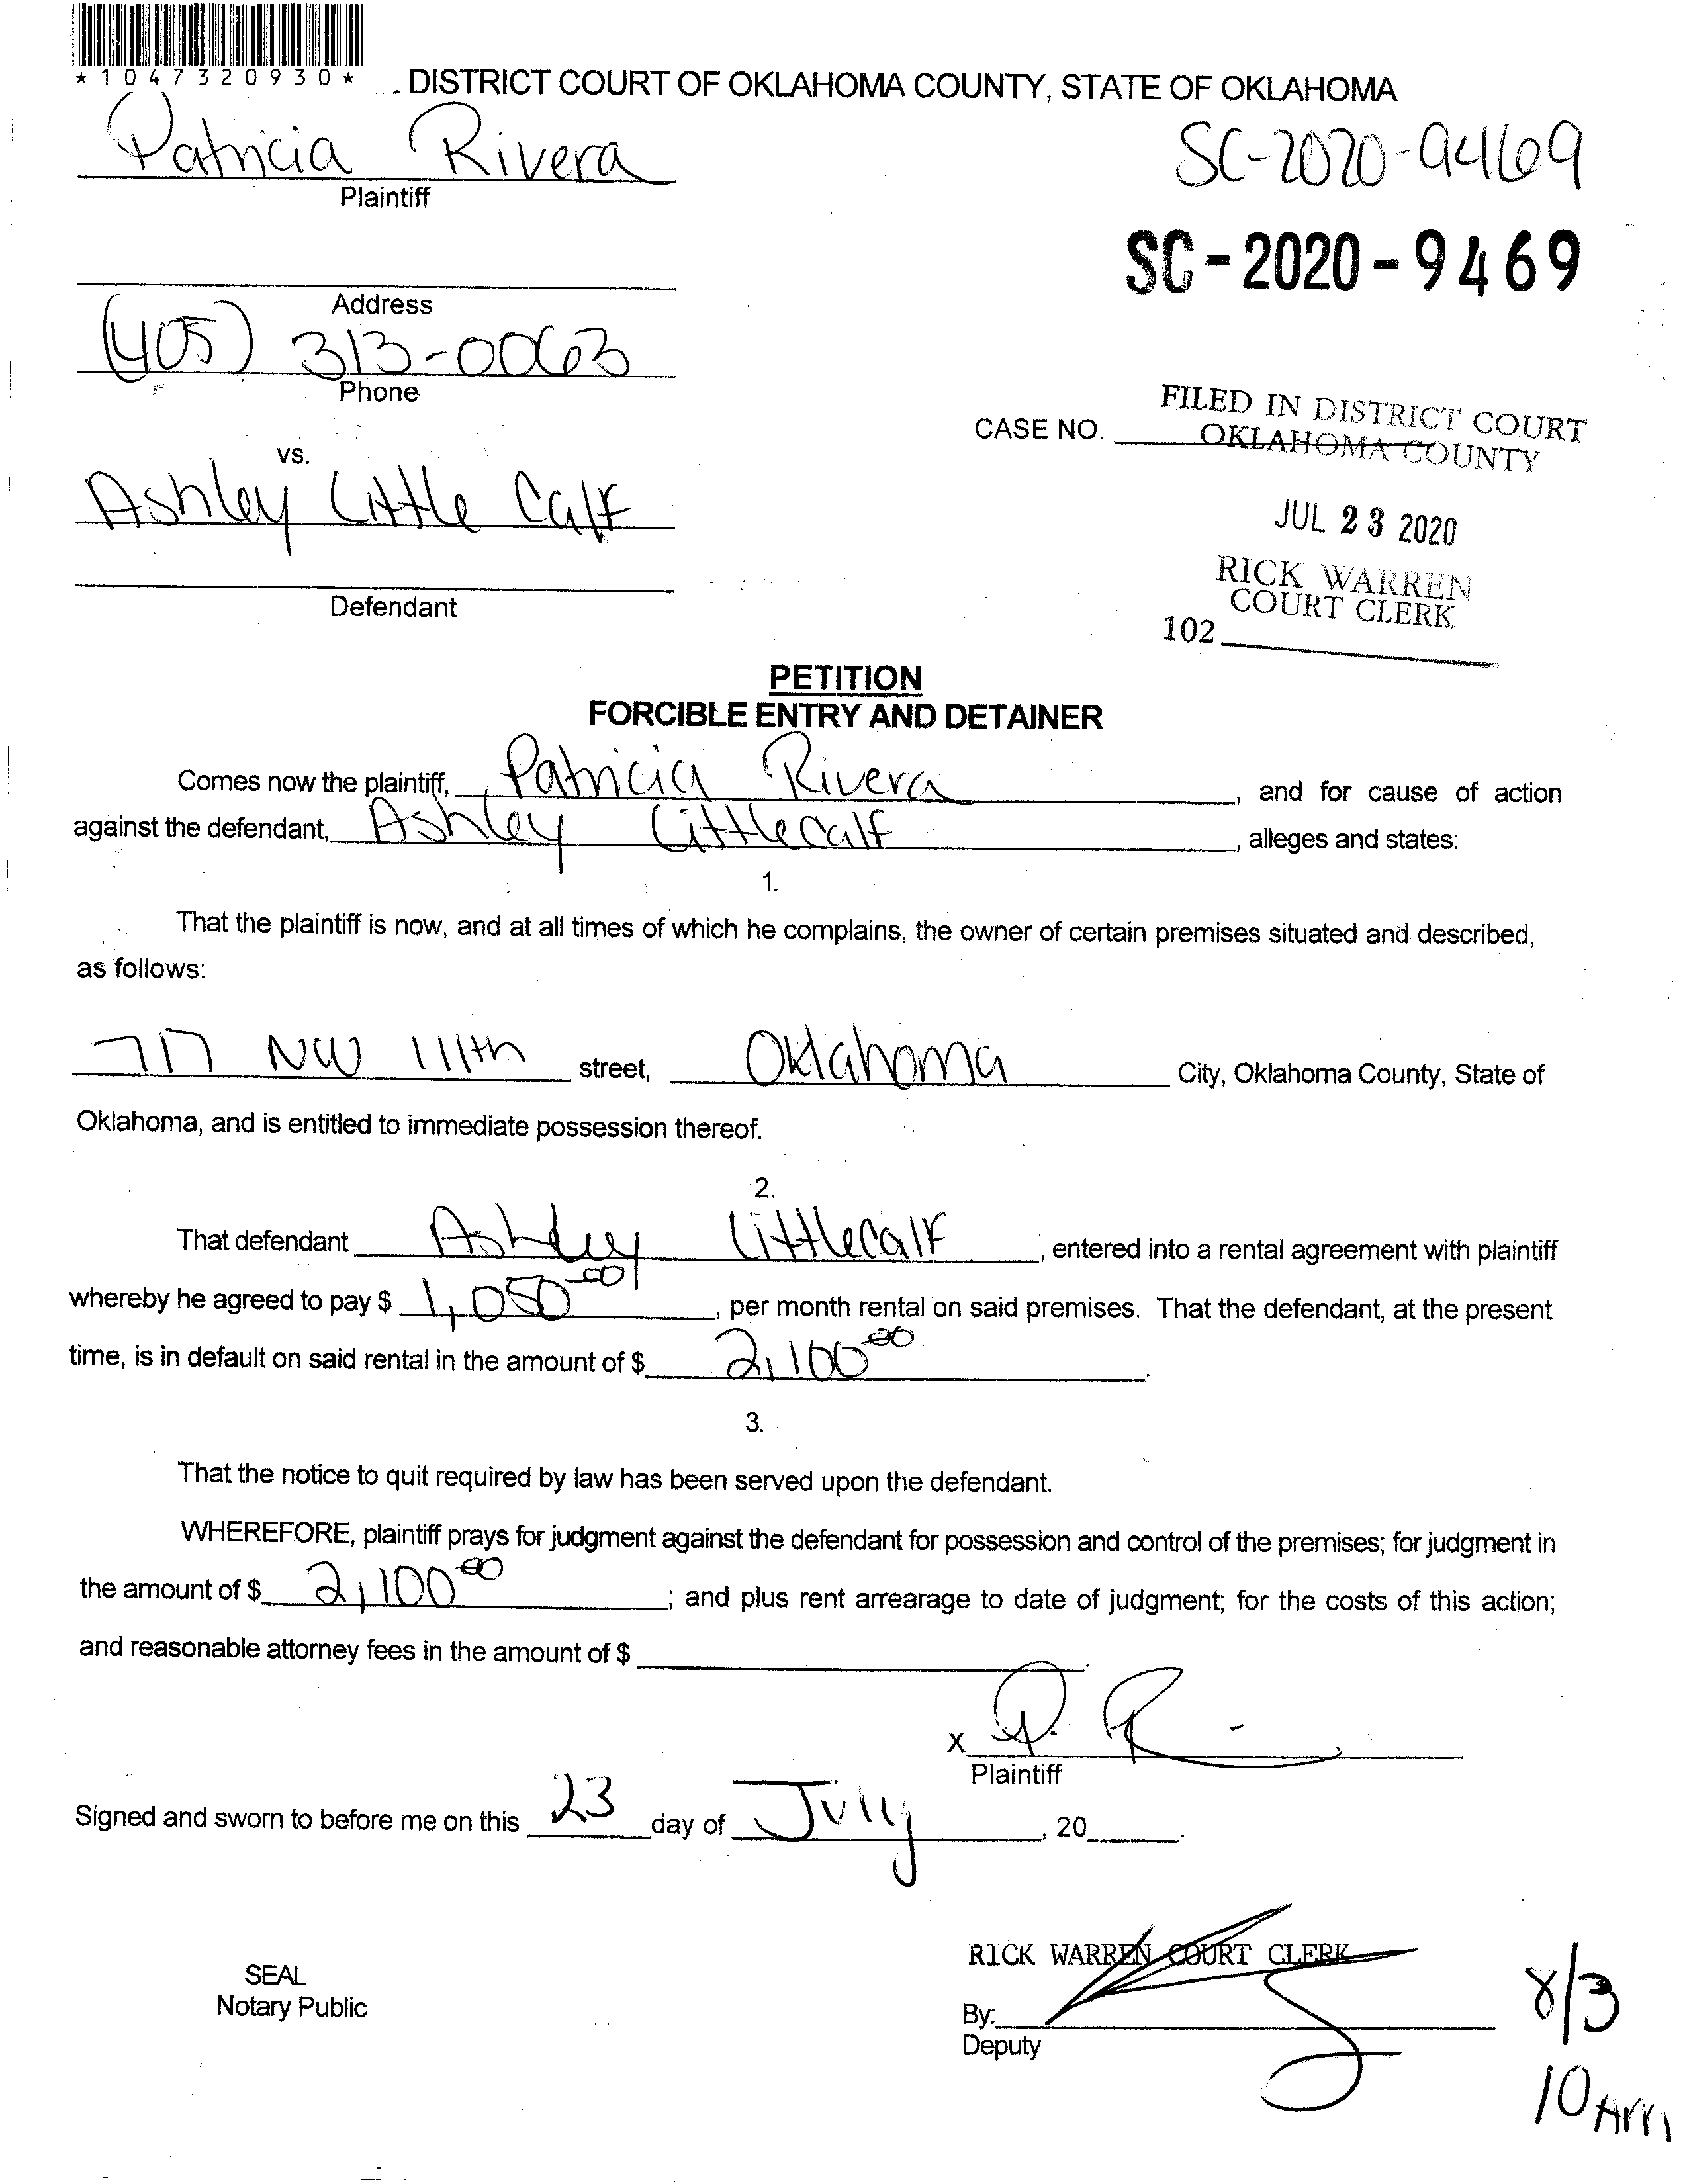 *1047320930*
DISTRICT COURT OF OKLAHOMA COUNTY, STATE OF OKLAHOMA
Patricia Rivera
Plaintiff
SC-2020-9469
SC-2020-9469
Address
(405) 313-0063
Phone
CASE NO.
FILED IN DISTRICT COURT
OKLAHOMA COUNTY
vs.
Ashley Little Calf
JUL 23 2020
RICK WARREN
COURT CLERK
102
Defendant
PETITION
FORCIBLE ENTRY AND DETAINER
Comes now the plaintiff, Patricia Rivera, and for cause of action
against the defendant, Ashley Littlecalf, alleges and states:
1.
That the plaintiff is now, and at all times of which he complains, the owner of certain premises situated and described,
as follows:
717 NW 111th street, Oklahoma City, Oklahoma County, State of
Oklahoma, and is entitled to immediate possession thereof.
2.
That defendant Ashley Littlecalf, entered into a rental agreement with plaintiff
whereby he agreed to pay $ 1,050.00, per month rental on said premises. That the defendant, at the present
time, is in default on said rental in the amount of $ 2,100.00.
3.
That the notice to quit required by law has been served upon the defendant.
WHEREFORE, plaintiff prays for judgment against the defendant for possession and control of the premises; for judgment in
the amount of $ 2,100.00; and plus rent arrearage to date of judgment; for the costs of this action;
and reasonable attorney fees in the amount of $
X P. R
Plaintiff
Signed and sworn to before me on this 23 day of July, 20
RICK WARREN COURT CLERK
SEAL
Notary Public
By:
Deputy
8/3
10 Am